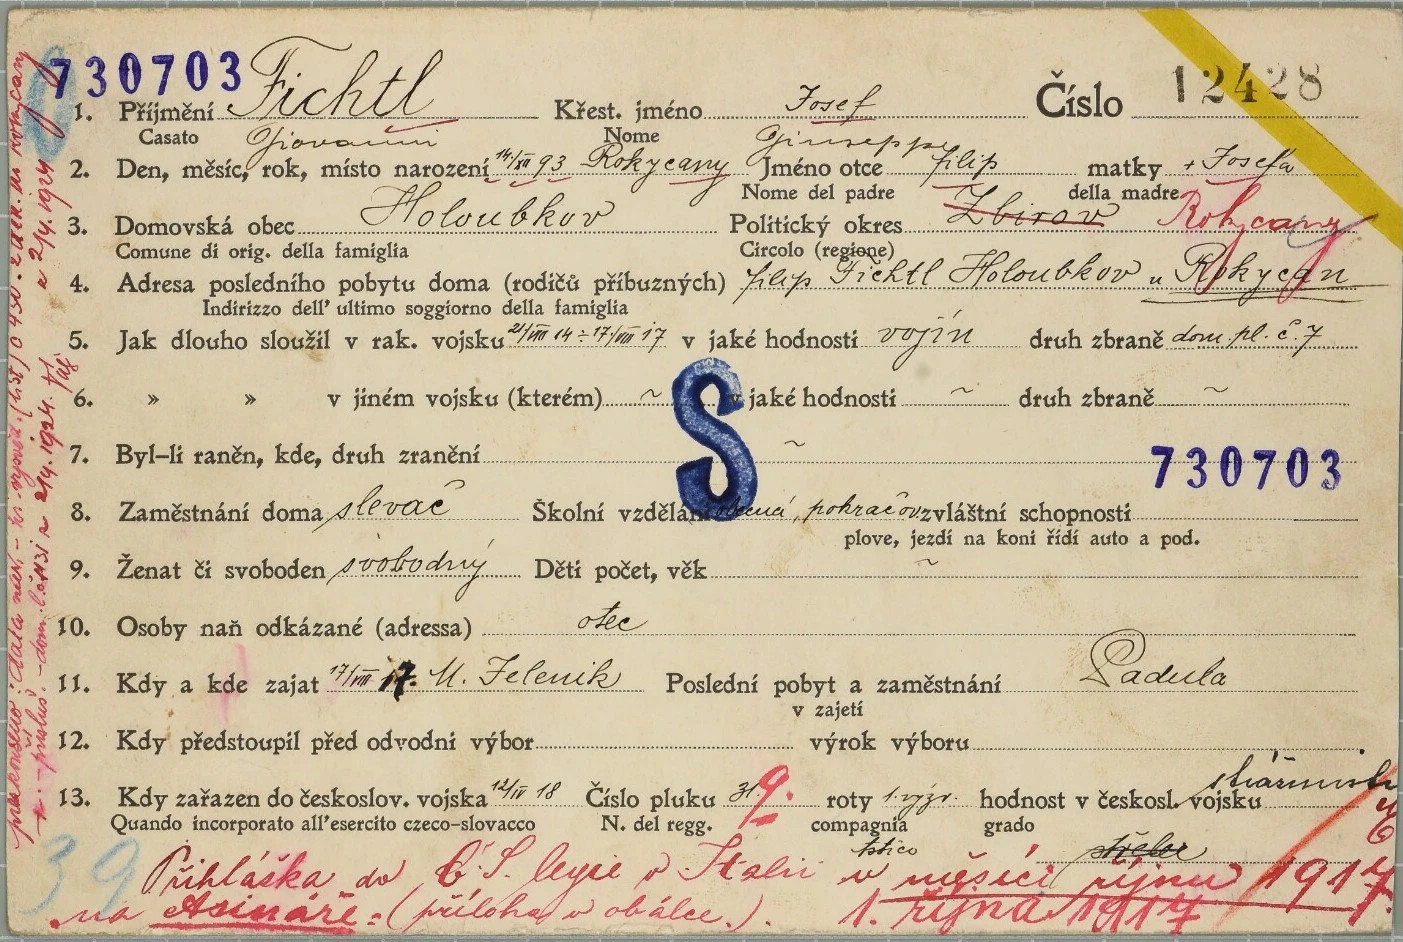 730703
Číslo 12428
1. Příjmení Fichtl Křest. jméno Josef
Casato Giovanni Nome Giuseppe
2. Den, měsíc, rok, místo narození 14/XII 93 Rokycany Jméno otce filip matky + Josefa
Nome del padre della madre
3. Domovská obec Holoubkov Politický okres Zbirov Rokycany
Comune di orig. della famiglia Circolo (regione)
4. Adresa posledního pobytu doma (rodičů příbuzných) filip Fichtl Holoubkov u Rokycan
Indirizzo dell' ultimo soggiorno della famiglia
5. Jak dlouho sloužil v rak. vojsku 21/VIII 14 ÷ 17/VIII 17 v jaké hodnosti vojín druh zbraně dom. pl. č. 7
6. » » v jiném vojsku (kterém) ~ v jaké hodnosti ~ druh zbraně ~
S
7. Byl-li raněn, kde, druh zranění ~
730703
8. Zaměstnání doma slevač Školní vzdělání obecná, pokračov. zvláštní schopnosti
plove, jezdí na koni řídí auto a pod.
9. Ženat či svoboden svobodný Děti počet, věk ~
10. Osoby naň odkázané (adressa) otec
11. Kdy a kde zajat 17/VIII 17. M. Jelenik Poslední pobyt a zaměstnání Padula
v zajetí
12. Kdy předstoupil před odvodní výbor výrok výboru
13. Kdy zařazen do českoslov. vojska 12/IV 18 Číslo pluku 31 9. roty 1. výzv. hodnost v českosl. vojsku
Quando incorporato all'esercito czeco-slovacco N. del regg. compagnia grado
39
Přihláška do Č. S. legie v Italii v měsíci říjnu 1917
na Asináře. (příloha v obálce.). 1. října 1917